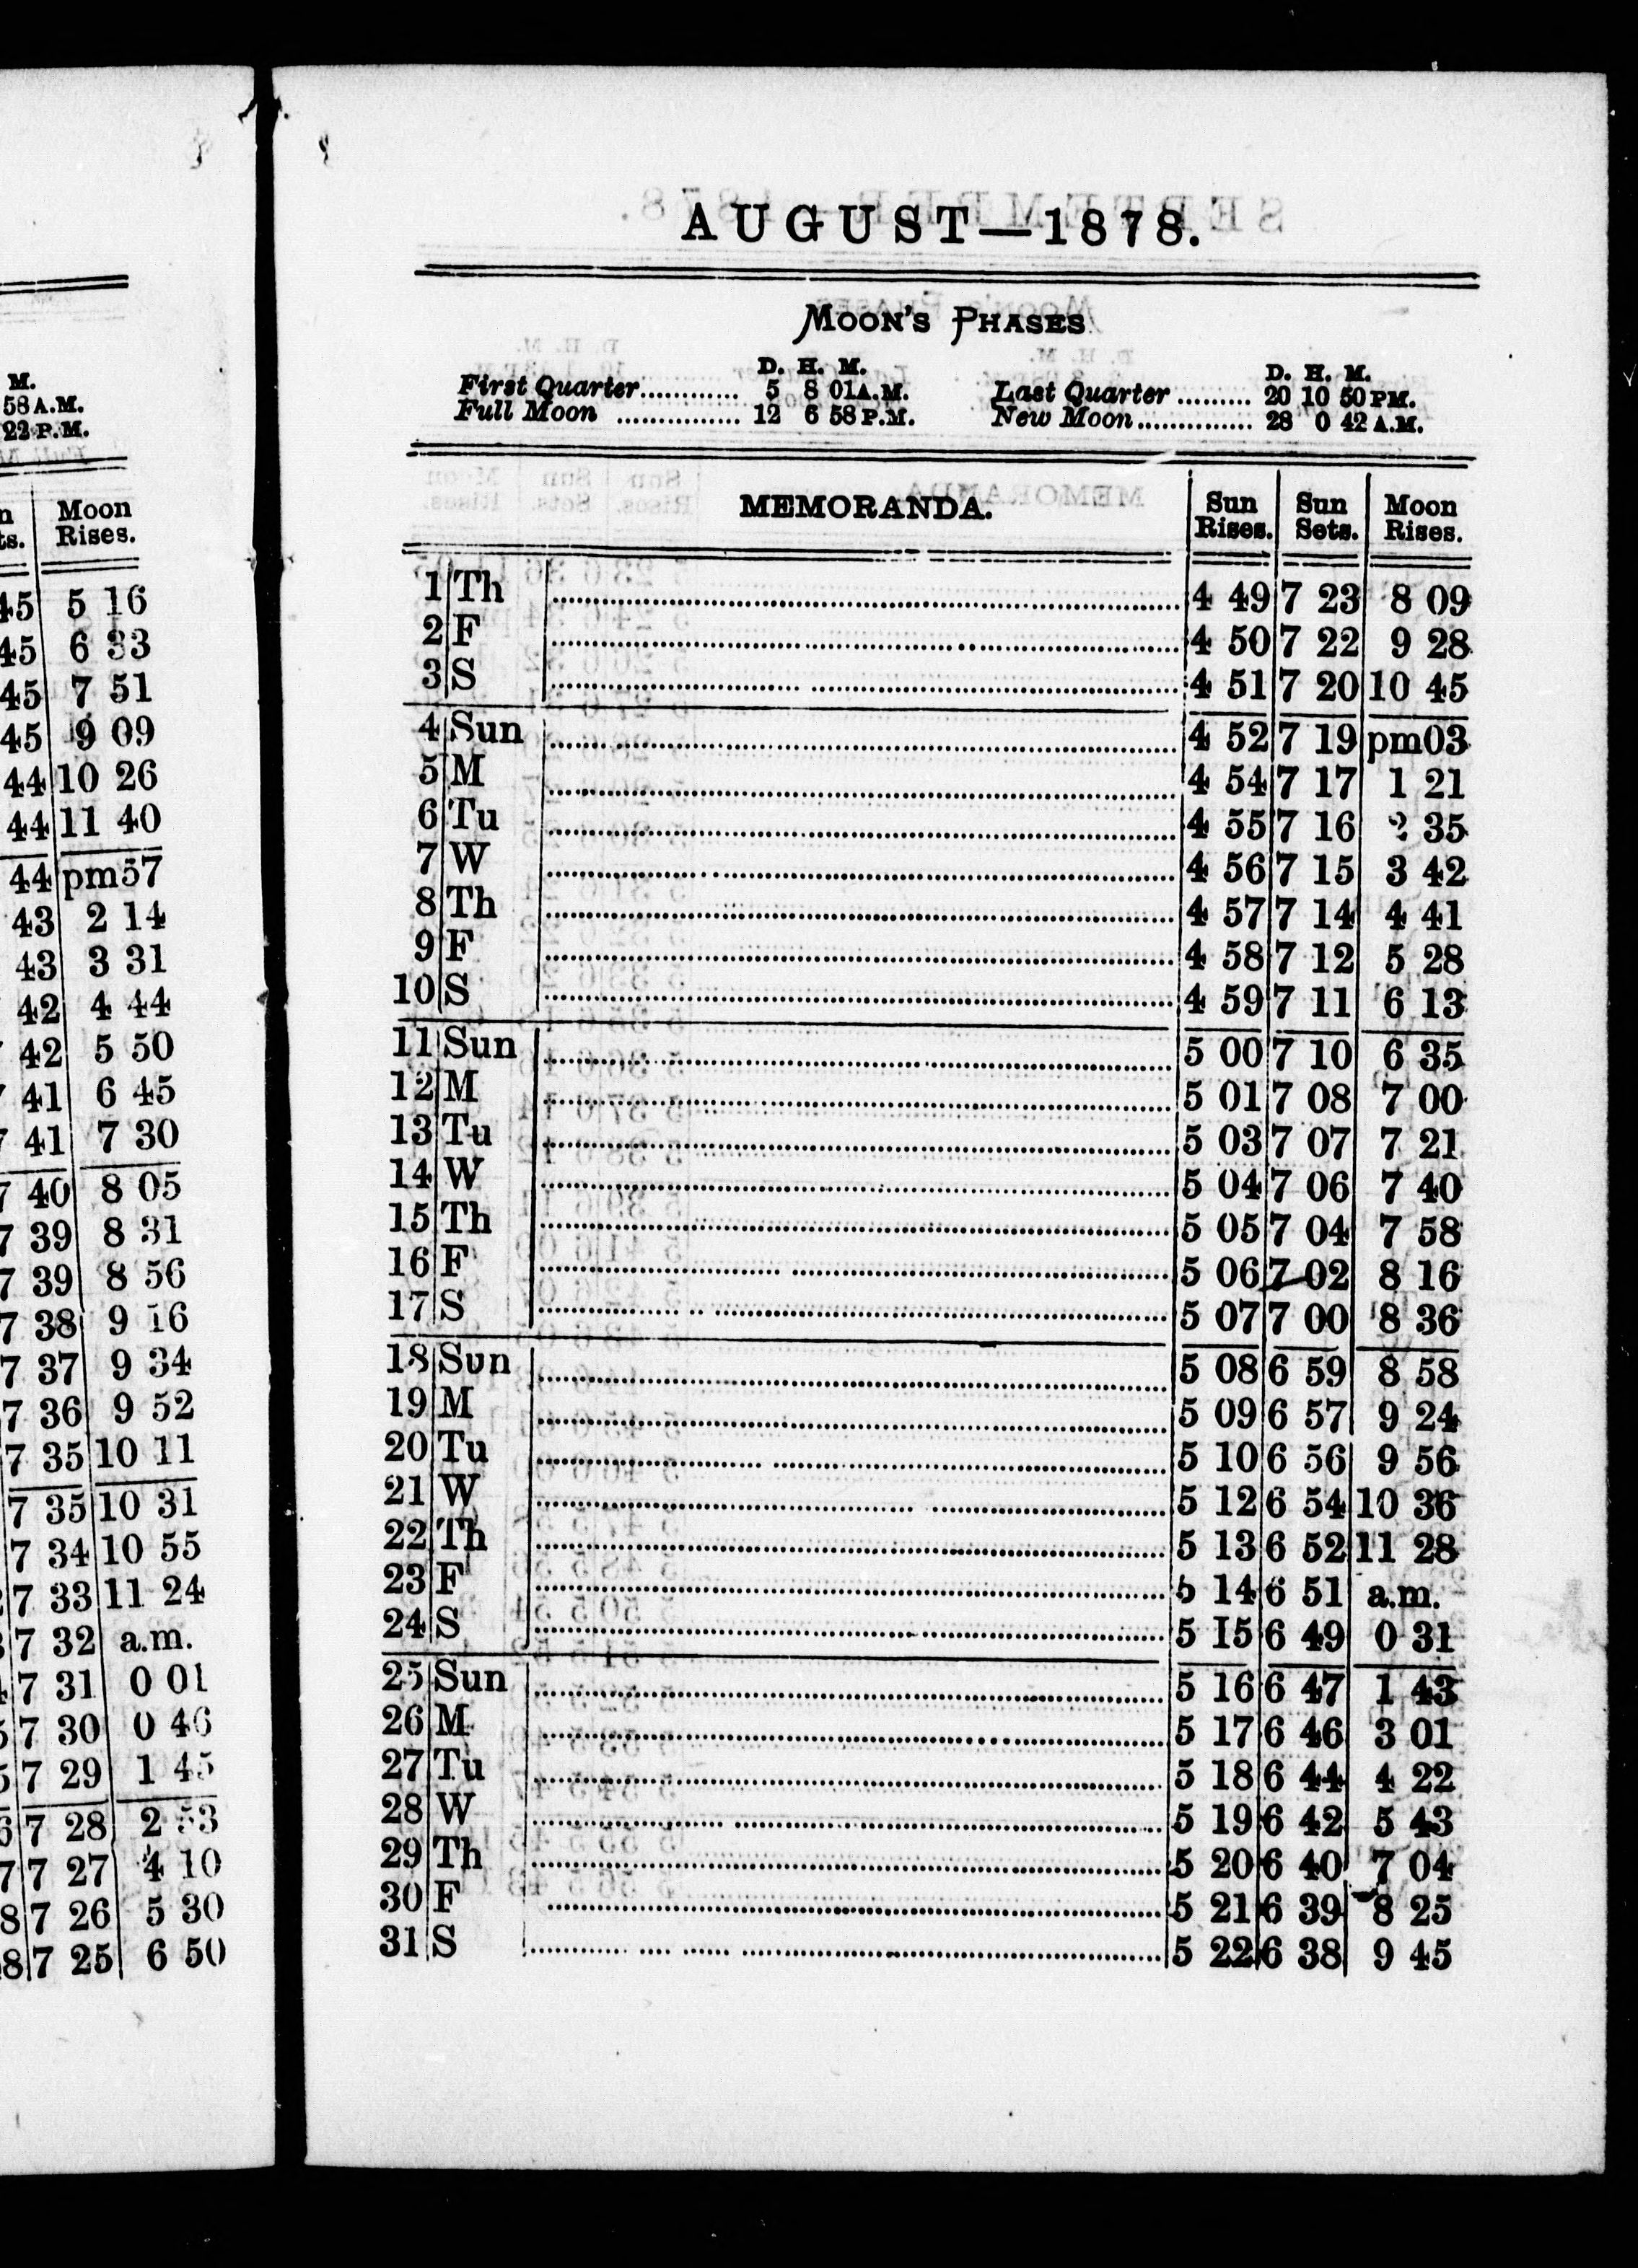 M.
58 A.M.
22 P.M.
Moon
ts. Rises.
45 5 16
45 6 33
45 7 51
45 9 09
44 10 26
44 11 40
44 pm57
43 2 14
43 3 31
42 4 44
42 5 50
41 6 45
7 41 7 30
7 40 8 05
7 39 8 31
7 39 8 56
7 38 9 16
7 37 9 34
7 36 9 52
7 35 10 11
7 35 10 31
7 34 10 55
7 33 11 24
7 32 a.m.
7 31 0 01
7 30 0 46
7 29 1 45
7 28 2 53
7 27 4 10
8 7 26 5 30
8 7 25 6 50
AUGUST—1878.
MOON'S PHASES
D. H. M. D. H. M.
First Quarter............ 5 8 01A.M. Last Quarter ......... 20 10 50 PM.
Full Moon ............... 12 6 58 P.M. New Moon.............. 28 0 42 A.M.
MEMORANDA. Sun Rises. Sun Sets. Moon Rises.
1 Th 4 49 7 23 8 09
2 F 4 50 7 22 9 28
3 S 4 51 7 20 10 45
4 Sun 4 52 7 19 pm03
5 M 4 54 7 17 1 21
6 Tu 4 55 7 16 2 35
7 W 4 56 7 15 3 42
8 Th 4 57 7 14 4 41
9 F 4 58 7 12 5 28
10 S 4 59 7 11 6 13
11 Sun 5 00 7 10 6 35
12 M 5 01 7 08 7 00
13 Tu 5 03 7 07 7 21
14 W 5 04 7 06 7 40
15 Th 5 05 7 04 7 58
16 F 5 06 7 02 8 16
17 S 5 07 7 00 8 36
18 Sun 5 08 6 59 8 58
19 M 5 09 6 57 9 24
20 Tu 5 10 6 56 9 56
21 W 5 12 6 54 10 36
22 Th 5 13 6 52 11 28
23 F 5 14 6 51 a.m.
24 S 5 15 6 49 0 31
25 Sun 5 16 6 47 1 43
26 M 5 17 6 46 3 01
27 Tu 5 18 6 44 4 22
28 W 5 19 6 42 5 43
29 Th 5 20 6 40 7 04
30 F 5 21 6 39 8 25
31 S 5 22 6 38 9 45